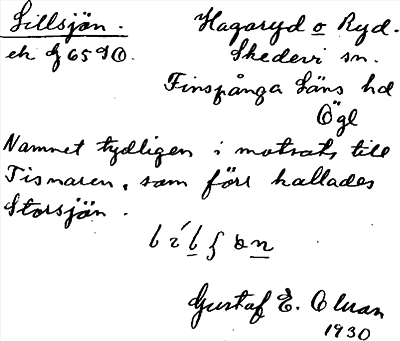 Lillsjön. Hagaryd o Ryd.
ek Skedevi sn.
Finspånga läns hd
Ögl
Namnet tydligen i motsats till
Tisnaren, som förr kallades
Storsjön.
Gustaf E.
1930